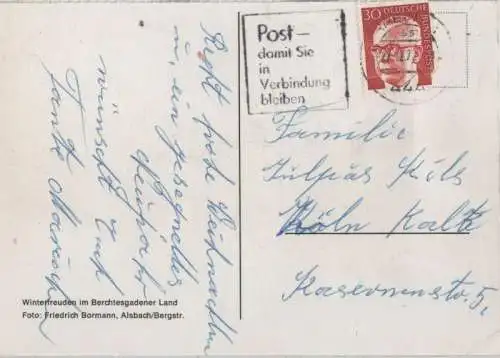 Recht frohe Weihnachten
u. ein gesegnetes
Neujahr
wünscht Euch
Tante
Winterfreuden im Berchtesgadener Land
Foto: Friedrich Bormann, Alsbach/Bergstr.
Post –
damit Sie
in
Verbindung
bleiben
30
DEUTSCHE
BUNDESPOST
Familie
Köln Kalk
Kasernenstr. 5,